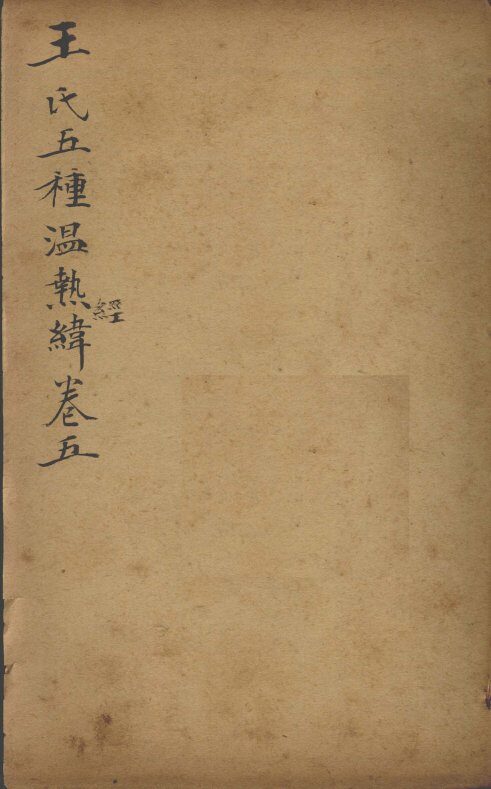 王氏五種温熱緯卷五
經